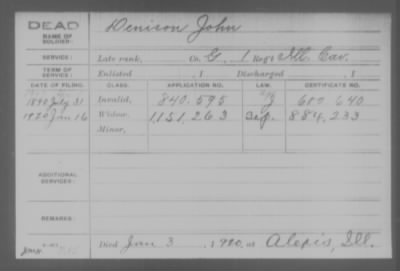 DEAD
NAME OF SOLDIER: Denison John
SERVICE: Late rank, Co. G, 1 Reg't Ill. Cav.
TERM OF SERVICE: Enlisted , 1 Discharged , 1
DATE OF FILING. CLASS. APPLICATION NO. LAW. CERTIFICATE NO.
1890 July 31 Invalid, 840.595 600 640
1920 Jan 16 Widow, 1151.263 884,233
Minor,
ADDITIONAL SERVICES:
REMARKS:
Died Jan 3, 1920, at Alexis, Ill.